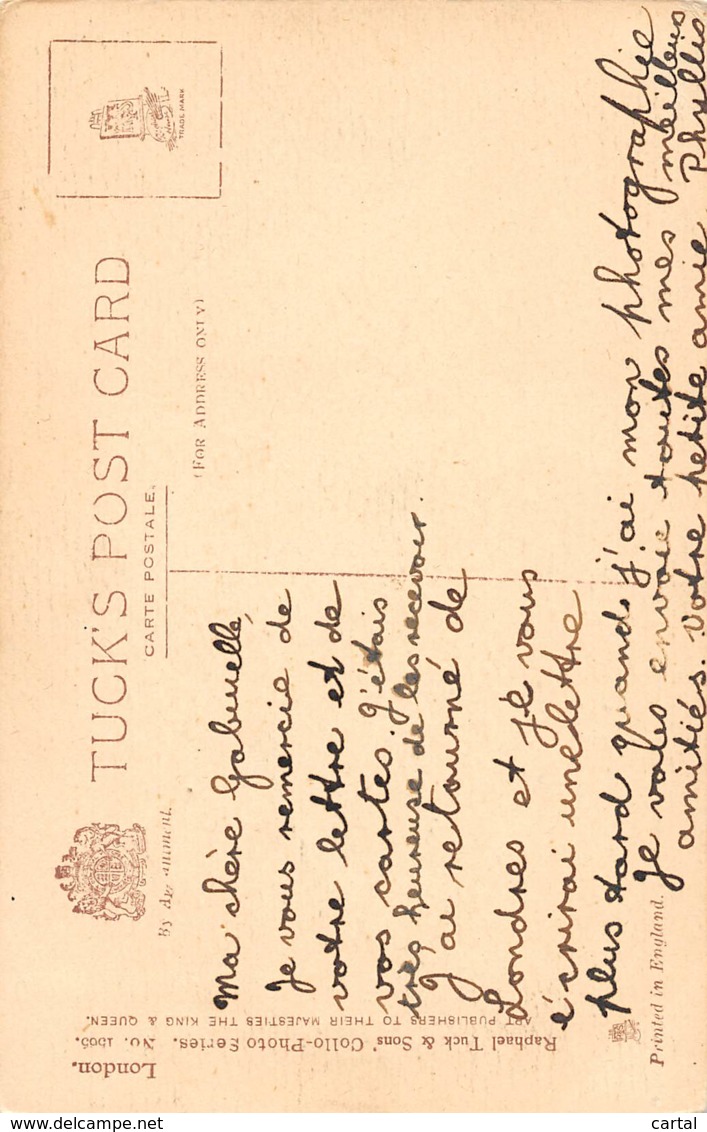 TUCK'S POST CARD
CARTE POSTALE.
(FOR ADDRESS ONLY)
TRADE MARK
Ma chère Gabrielle,
Je vous remercie de
votre lettre et de
vos cartes. J'étais
très heureuse de les recevoir.
J'ai retourné de
Londres et je vous
écrirai une lettre
plus tard quand j'ai mon photographie
Je vous envoie toutes mes meilleurs
amitiés. Votre petite amie Phyllis
Printed in England.
Raphael Tuck & Sons' Collo-Photo Series. No.
London.
ART PUBLISHERS TO THEIR MAJESTIES THE KING & QUEEN.
delcampe.net
cartal